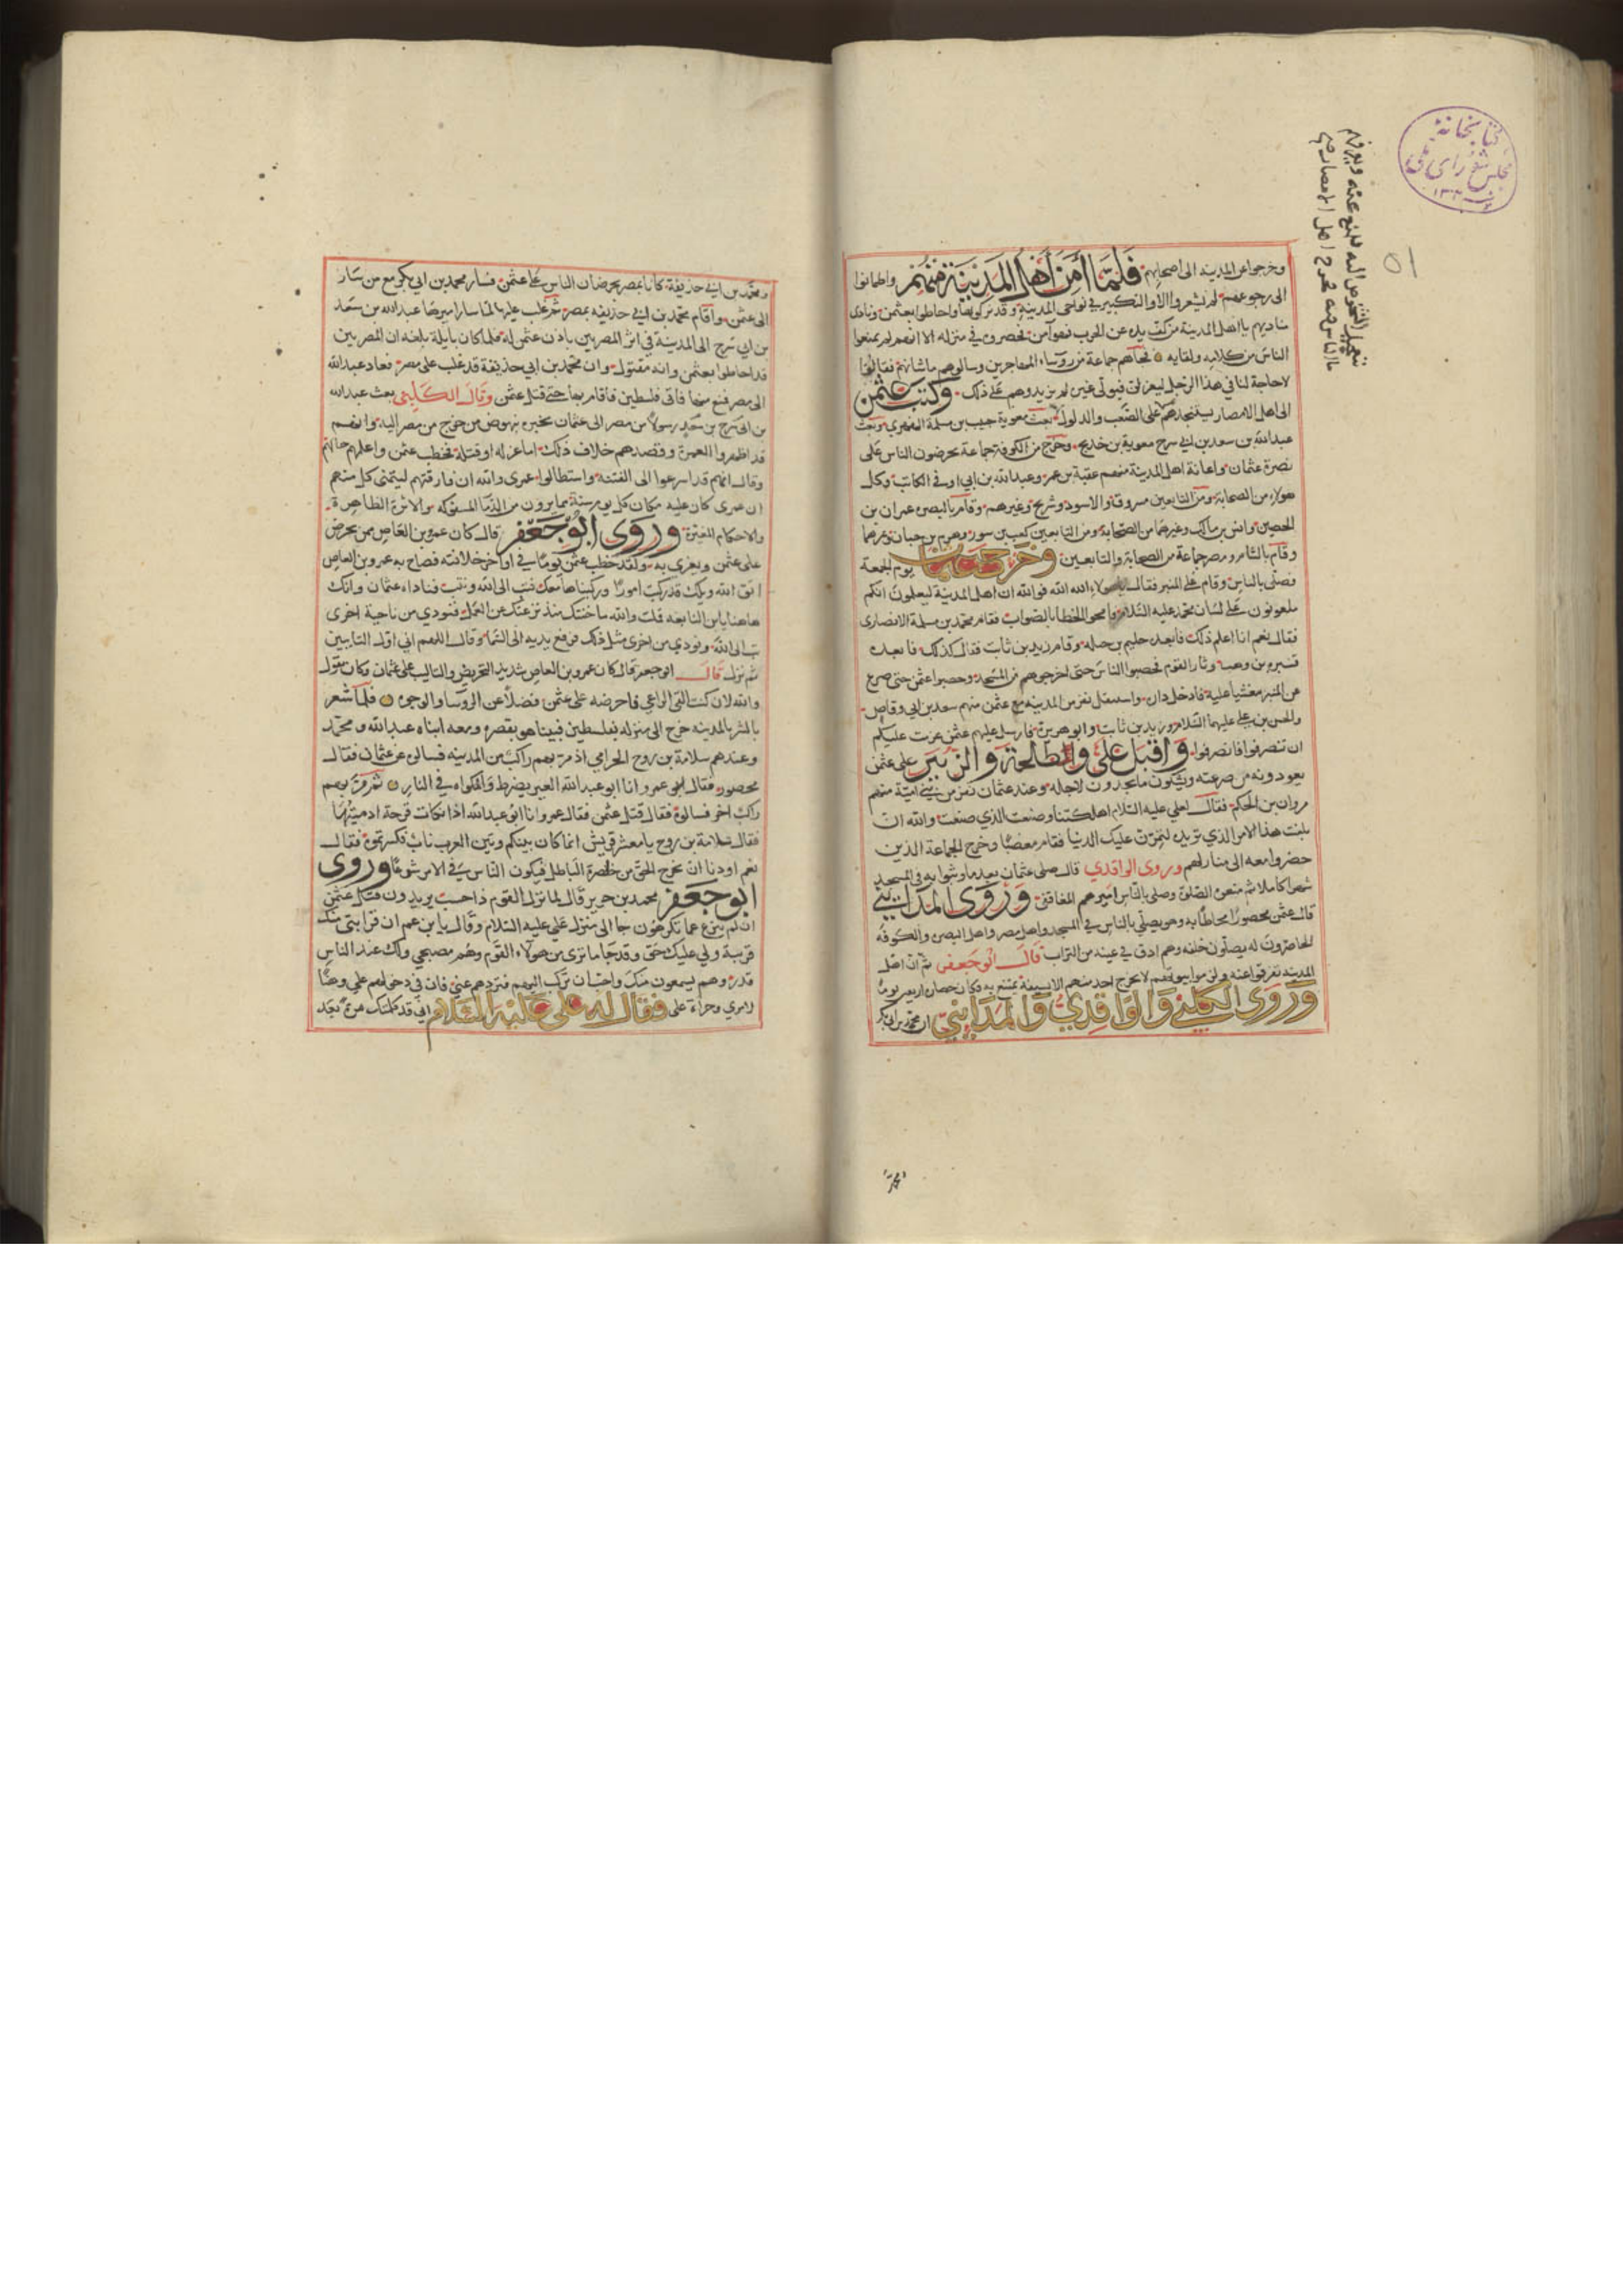 كتابخانة
مجلس شورای ملی
٥١
وخرجوا عن المدينه الى اصحابهم فلما أمن أهل المدينة منهم واطمانوا
الى رجوعهم لم يشعروا الا والتكبير في نواحي المدينة وقد نزلوها واحاطوا بعثمن ونادى
مناديهم يا اهل المدينة من كف يده عن الحرب فهو آمن فحصروه في منزله الا انهم لم يمنعوا
الناس من كلامه ولقايه فجآهم جماعة من روساء المهاجرين وسالوهم ما شانهم فقالوا
لا حاجة لنا في هذا الرجل ليعزلنا فنولي غيره لم يزيدوهم على ذلك وكتب عثمن
الى اهل الامصار يستنجدهم على الصعب والدلول بعث معوية حبيب بن مسلمة الفهري وبعث
عبدالله بن سعد بن ابي سرح معوية بن خديج وخرج من الكوفة جماعة يحرضون الناس على
نصرة عثمان واعانة اهل المدينة منهم عقبة بن عمر وعبدالله بن ابي اوفى الكاتب وكل
هولاء من الصحابة ومن التابعين مسروق والاسود وشريح وغيرهم وقام بالبصره عمران بن
الحصين وانس بن مالك وغيرهما من الصحابة ومن التابعين كعب بن سور وهرم بن حيان وغيرهما
وقام بالشام ومصر جماعة من الصحابة والتابعين وخرج عثمان يوم الجمعة
فصلى بالناس وقام على المنبر فقال يا هولاء الله الله فوالله ان اهل المدينة ليعلمون انكم
ملعونون على لسان محمد عليه السلام فامحوا الخطا بالصواب فقام محمد بن مسلمة الانصاري
فقال نعم انا اعلم ذلك فاقعده حكيم بن جبله وقام زيد بن ثابت فقال كذلك فاقعده
قتيره بن وهب وثار القوم فحصبوا الناس حتى اخرجوهم من المسجد وحصبوا عثمن حتى صرع
عن المنبر مغشيا عليه فادخل داره واستقتل نفر من المدينة مع عثمن منهم سعد بن ابي وقاص
والحسن بن علي عليهما السلام وزيد بن ثابت وابو هريرة فارسل عليهم عثمن عزمت عليكم
ان تنصرفوا فانصرفوا واقبل علي وطلحة والزبير على عثمن
يعودونه من صرعته ويشكون ما يجدون لاجله وعند عثمان نفر من بني امية منهم
مروان بن الحكم فقال لعلي عليه السلام اهلكتنا وصنعت الذي صنعت والله ان
بلغت هذا الامر الذي تريد لتمرن عليك الدنيا فقام مغضبا وخرج الجماعة الذين
حضروا معه الى منازلهم وروى الواقدي قال صلى عثمان بعد ما وثبوا به في المسجد
شهرا كاملا ثم منعوه الصلوة وصلى بالناس اميرهم الغافقي وروى المدايني
قال عثمن محصورا محاطا به وهو يصلي بالناس في المسجد واهل مصر واهل البصره والكوفه
الحاضرون له يصلون خلفه وهم ادق في عينه من التراب قال ابو جعفر ثم ان اهل
المدينه تفرقوا عنه ولزموا بيوتهم لا يخرج احد منهم الا بسيفه يمتنع به فكان حصاره اربعين يوما
وروى الكلبي والواقدي والمدايني ان محمد بن ابي بكر
ومحمد بن ابي حذيفة كانا بمصر يحرضان الناس على عثمن فسار محمد بن ابي بكر مع من سار
الى عثمن واقام محمد بن ابي حذيفه بمصر ثم غلب عليها لما سار اميرها عبدالله بن سعد
بن ابي سرح الى المدينة في اثر المصريين باذن عثمن له فلما كان بايلة بلغه ان المصريين
قد احاطوا بعثمن وانه مقتول وان محمد بن ابي حذيفة قد غلب على مصر فعاد عبدالله
الى مصر فمنع منها فاتى فلسطين فاقام بها حتى قتل عثمن وقال الكلبي بعث عبدالله
بن سعد بن ابي سرح رسولا من مصر الى عثمان يخبره بنهوض من خرج من مصر اليه وانهم
قد اظهروا العمرة وقصدهم خلاف ذلك اما عزله او قتله فخطب عثمن واعلمهم حالهم
وقال انهم قد اسرعوا الى الفتنه واستطالوا عمري والله ان فارقتهم ليتمنى كل منهم
ان عمري كان عليه مكان كل يوم سنة مما يرون من الدما المسفوكه والاثرة الظاهرة
والاحكام المغيرة وروى ابو جعفر قال كان عمرو بن العاص ممن يحرض
على عثمن ويغري به ولقد خطب عثمن يوما في اواخر خلافته فصاح به عمرو بن العاص
اتق الله ويلك قد ركبت امورا وركبناها معك فتب الى الله ونتب فناداه عثمان وانك
هاهنا يابن النابغه قلت والله ما ختك منذ نزعتك عن العمل فنودي من ناحية اخرى
تب الى الله ونودي من اخرى مثل ذلك فرفع يديه الى السماء وقال اللهم اني اول التايبين
ثم نزل قال ابو جعفر قال كان عمرو بن العاص شديد التحريض والتاليب على عثمان وكان يقول
والله لان كنت القى الراعي فاحرضه على عثمن فضلا عن الروسا والوجوه فلما شعر
بالشر بالمدينه خرج الى منزله بفلسطين فبينا هو بقصره ومعه ابناه عبدالله ومحمد
وعندهم سلامة بن روح الجرامي اذ مر بهم راكب من المدينه فسالوه عن عثمان فقال
محصور فقال عمرو انا ابو عبدالله العير يضرط والمكواه في النار ثم مر بهم
راكب اخر فسالوه فقال قتل عثمن فقال عمرو انا ابو عبدالله اذا نكات قرحة ادميتها
فقال سلامة بن روح يا معشر قريش انما كان بينكم وبين العرب باب فكسرتموه فقال
نعم اردنا ان نخرج الحق من خاصرة الباطل فيكون الناس في الامر شرعا وروى
ابو جعفر محمد بن جرير قال لما نزل القوم ذا خشب يريدون قتل عثمن
ان لم ينزع عما يكرهون جا الى منزل علي عليه السلام وقال يا بن عم ان قرابتي منك
قريبة ولي عليك حق وقد جا ما ترى من هولاء القوم وهم مصبحي ولك عند الناس
قدر وهم يسمعون منك واحب ان تركب اليهم فتردهم عني فان في دخولهم علي وهنا
لامري وجراءة علي فقال له علي عليه السلام اني قد كلمتك مرة بعد